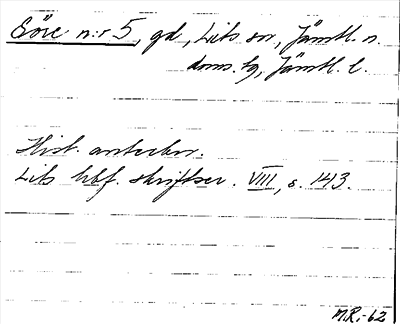 Söre n:r 5, gd, Lits sn, Jämtl. n.
doms. tg, Jämtl. l.
Hist. anteckn.
Lits hbf. skriftser. VIII, s. 143.
M.R. -62